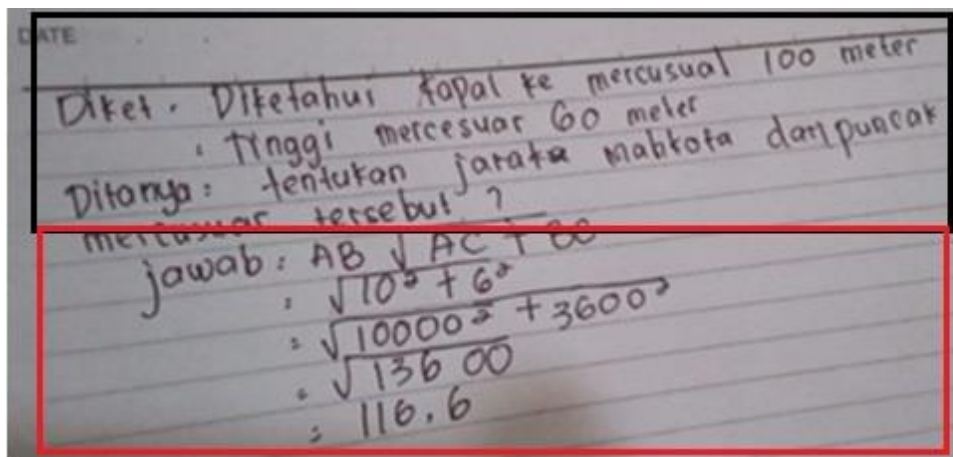 DATE
Diket. Diketahui kapal ke mercusual 100 meter
: tinggi mercesuar 60 meter
Ditanya: tentukan jarak mahkota dari puncak
mercusuar tersebut?
jawab: AB √AC +
: √10² + 6²
: √10000² + 3600²
: √136 00
: 116.6